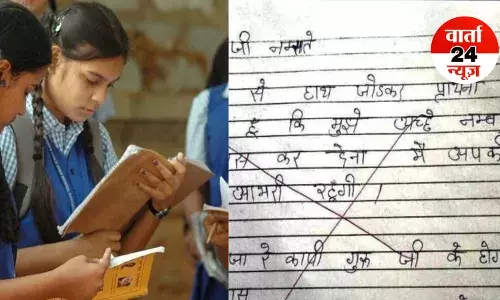 वार्ता
24
न्यूज़
जी नमस्ते
से हाथ जोडकर प्राथना
हू कि मुझे अच्छे नम्ब
स कर देना मै अपकी
आभरी रहूँगी ।
जा रे कापी गुरू जी के होग